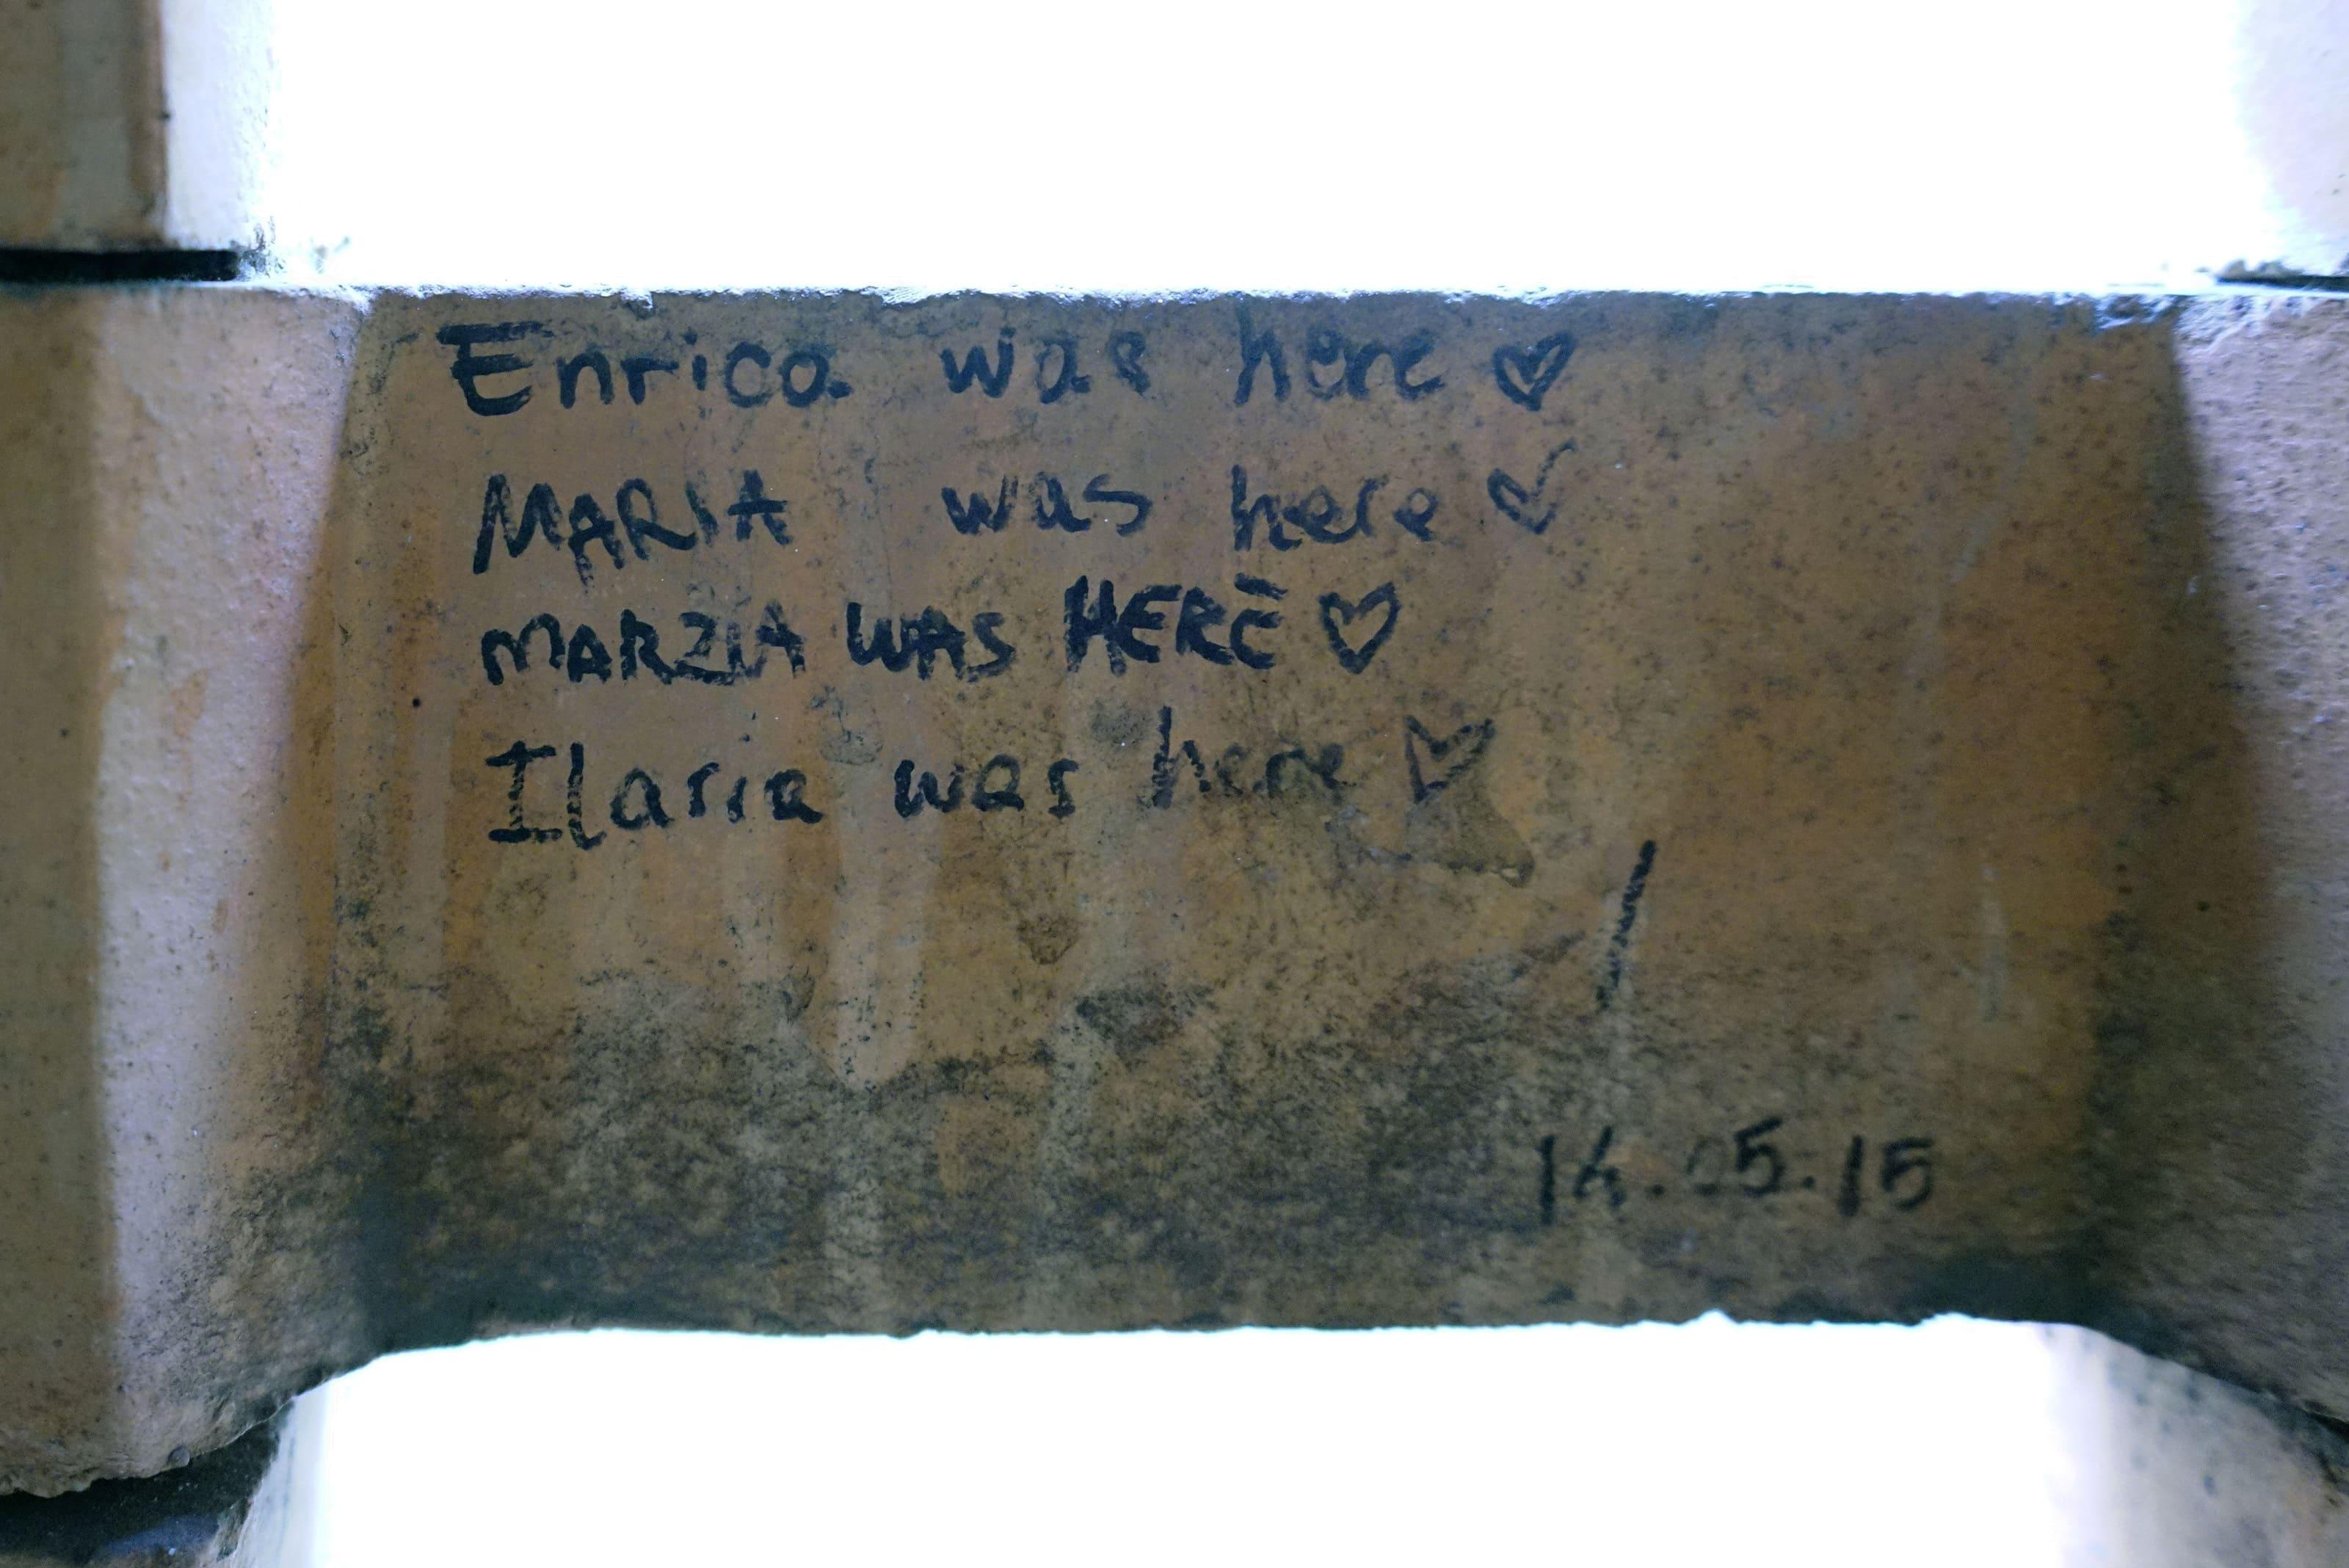 Enrica was here ♡
MARIA was here ♡
MARZIA WAS HERE ♡
Ilaria was here ♡
14.05.15